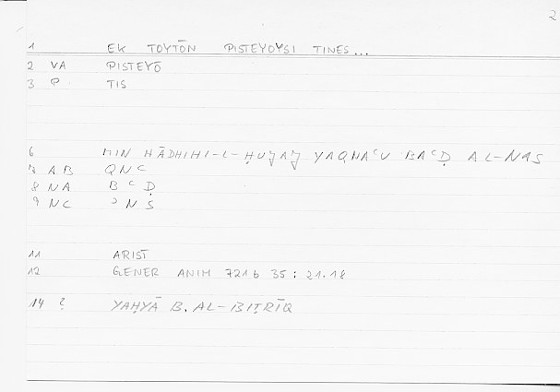 2
1 EK TOYTŌN PISTEYOYSI TINES...
2 VA PISTEYŌ
3 P TIS
6 MIN HĀDHIHI-L-ḤUǦAǦ YAQNAʿU BAʿḌ AL-NĀS
7 AB QNʿ
8 NA BʿḌ
9 NC ʾNS
11 ARIST
12 GENER ANIM 721b 35; 21.18
14 ? YAḤYĀ B. AL-BIṬRĪQ